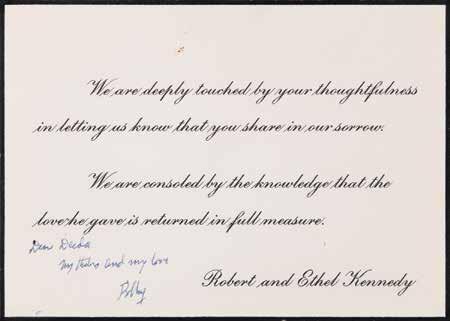 We are deeply touched by your thoughtfulness
in letting us know that you share in our sorrow.
We are consoled by the knowledge that the
love he gave is returned in full measure.
Dear
my and my love
Bobby
Robert and Ethel Kennedy